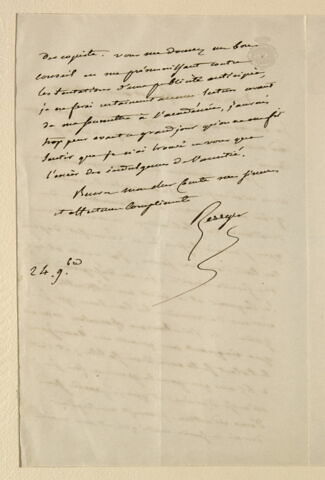 des coquets. vous me donnez un bon
conseil en me prémunissant contre
les tentations d'une publicité anticipée,
je ne ferai certainement aucune lecture avant
de me soumettre à l'académie, j'aurais
trop peur avant ce grand jour qu'on ne me fit
sentir que je n'ai trouvé en vous que
l'excès des indulgences de l'amitié.
Recevez mon cher Comte mes sincères
et affectueux Compliments
Berryer
24. 9.bre